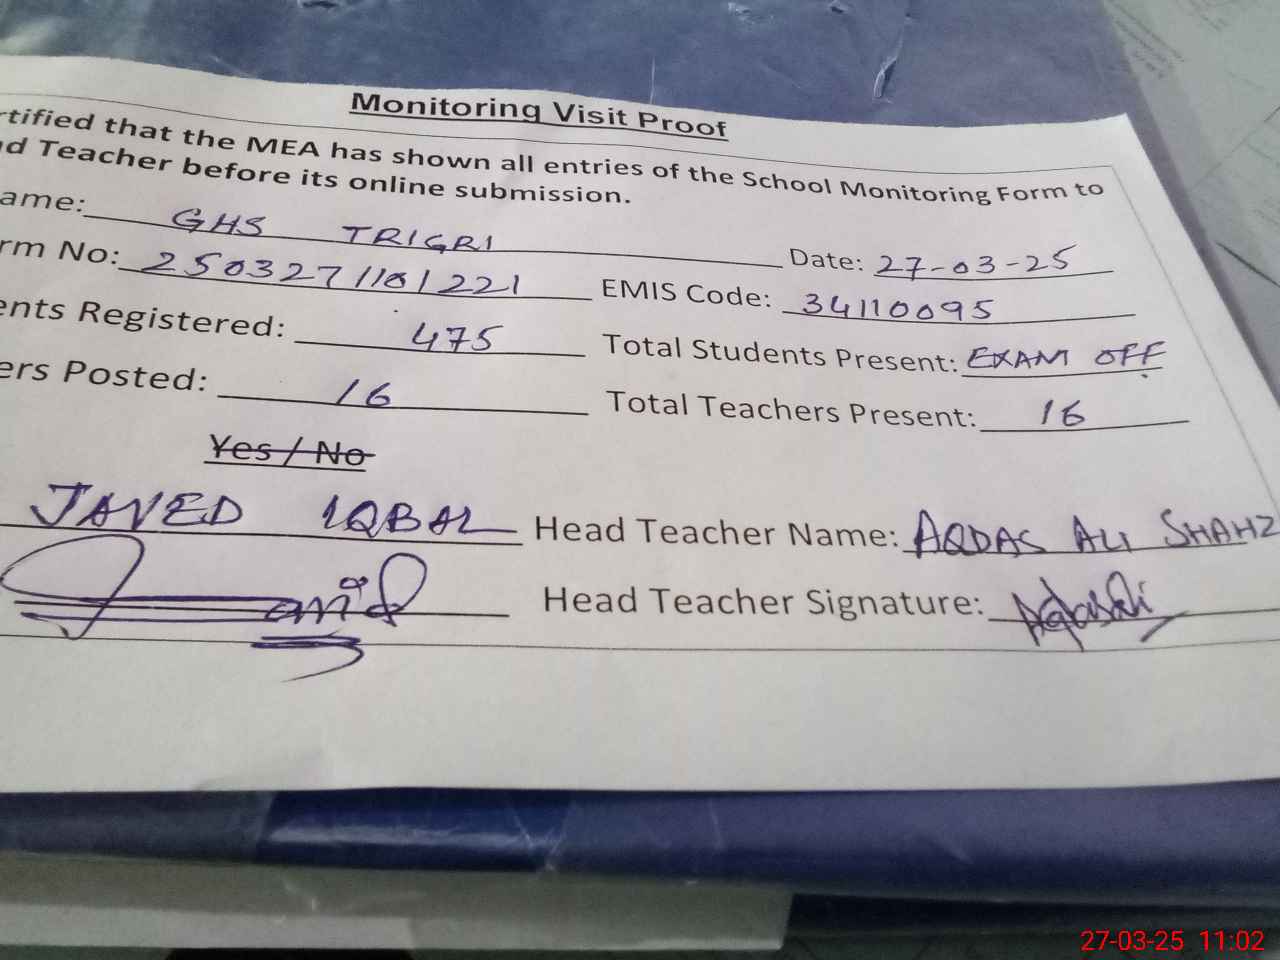 Monitoring Visit Proof
rtified that the MEA has shown all entries of the School Monitoring Form to
d Teacher before its online submission.
ame: GHS TRIGRI
Date: 27-03-25
rm No: 2503271101221 EMIS Code: 34110095
ents Registered: 475 Total Students Present: EXAM OFF
ers Posted: 16 Total Teachers Present: 16
Yes / No
JAVED IQBAL Head Teacher Name: AQDAS ALI SHAHZ
Head Teacher Signature:
27-03-25 11:02